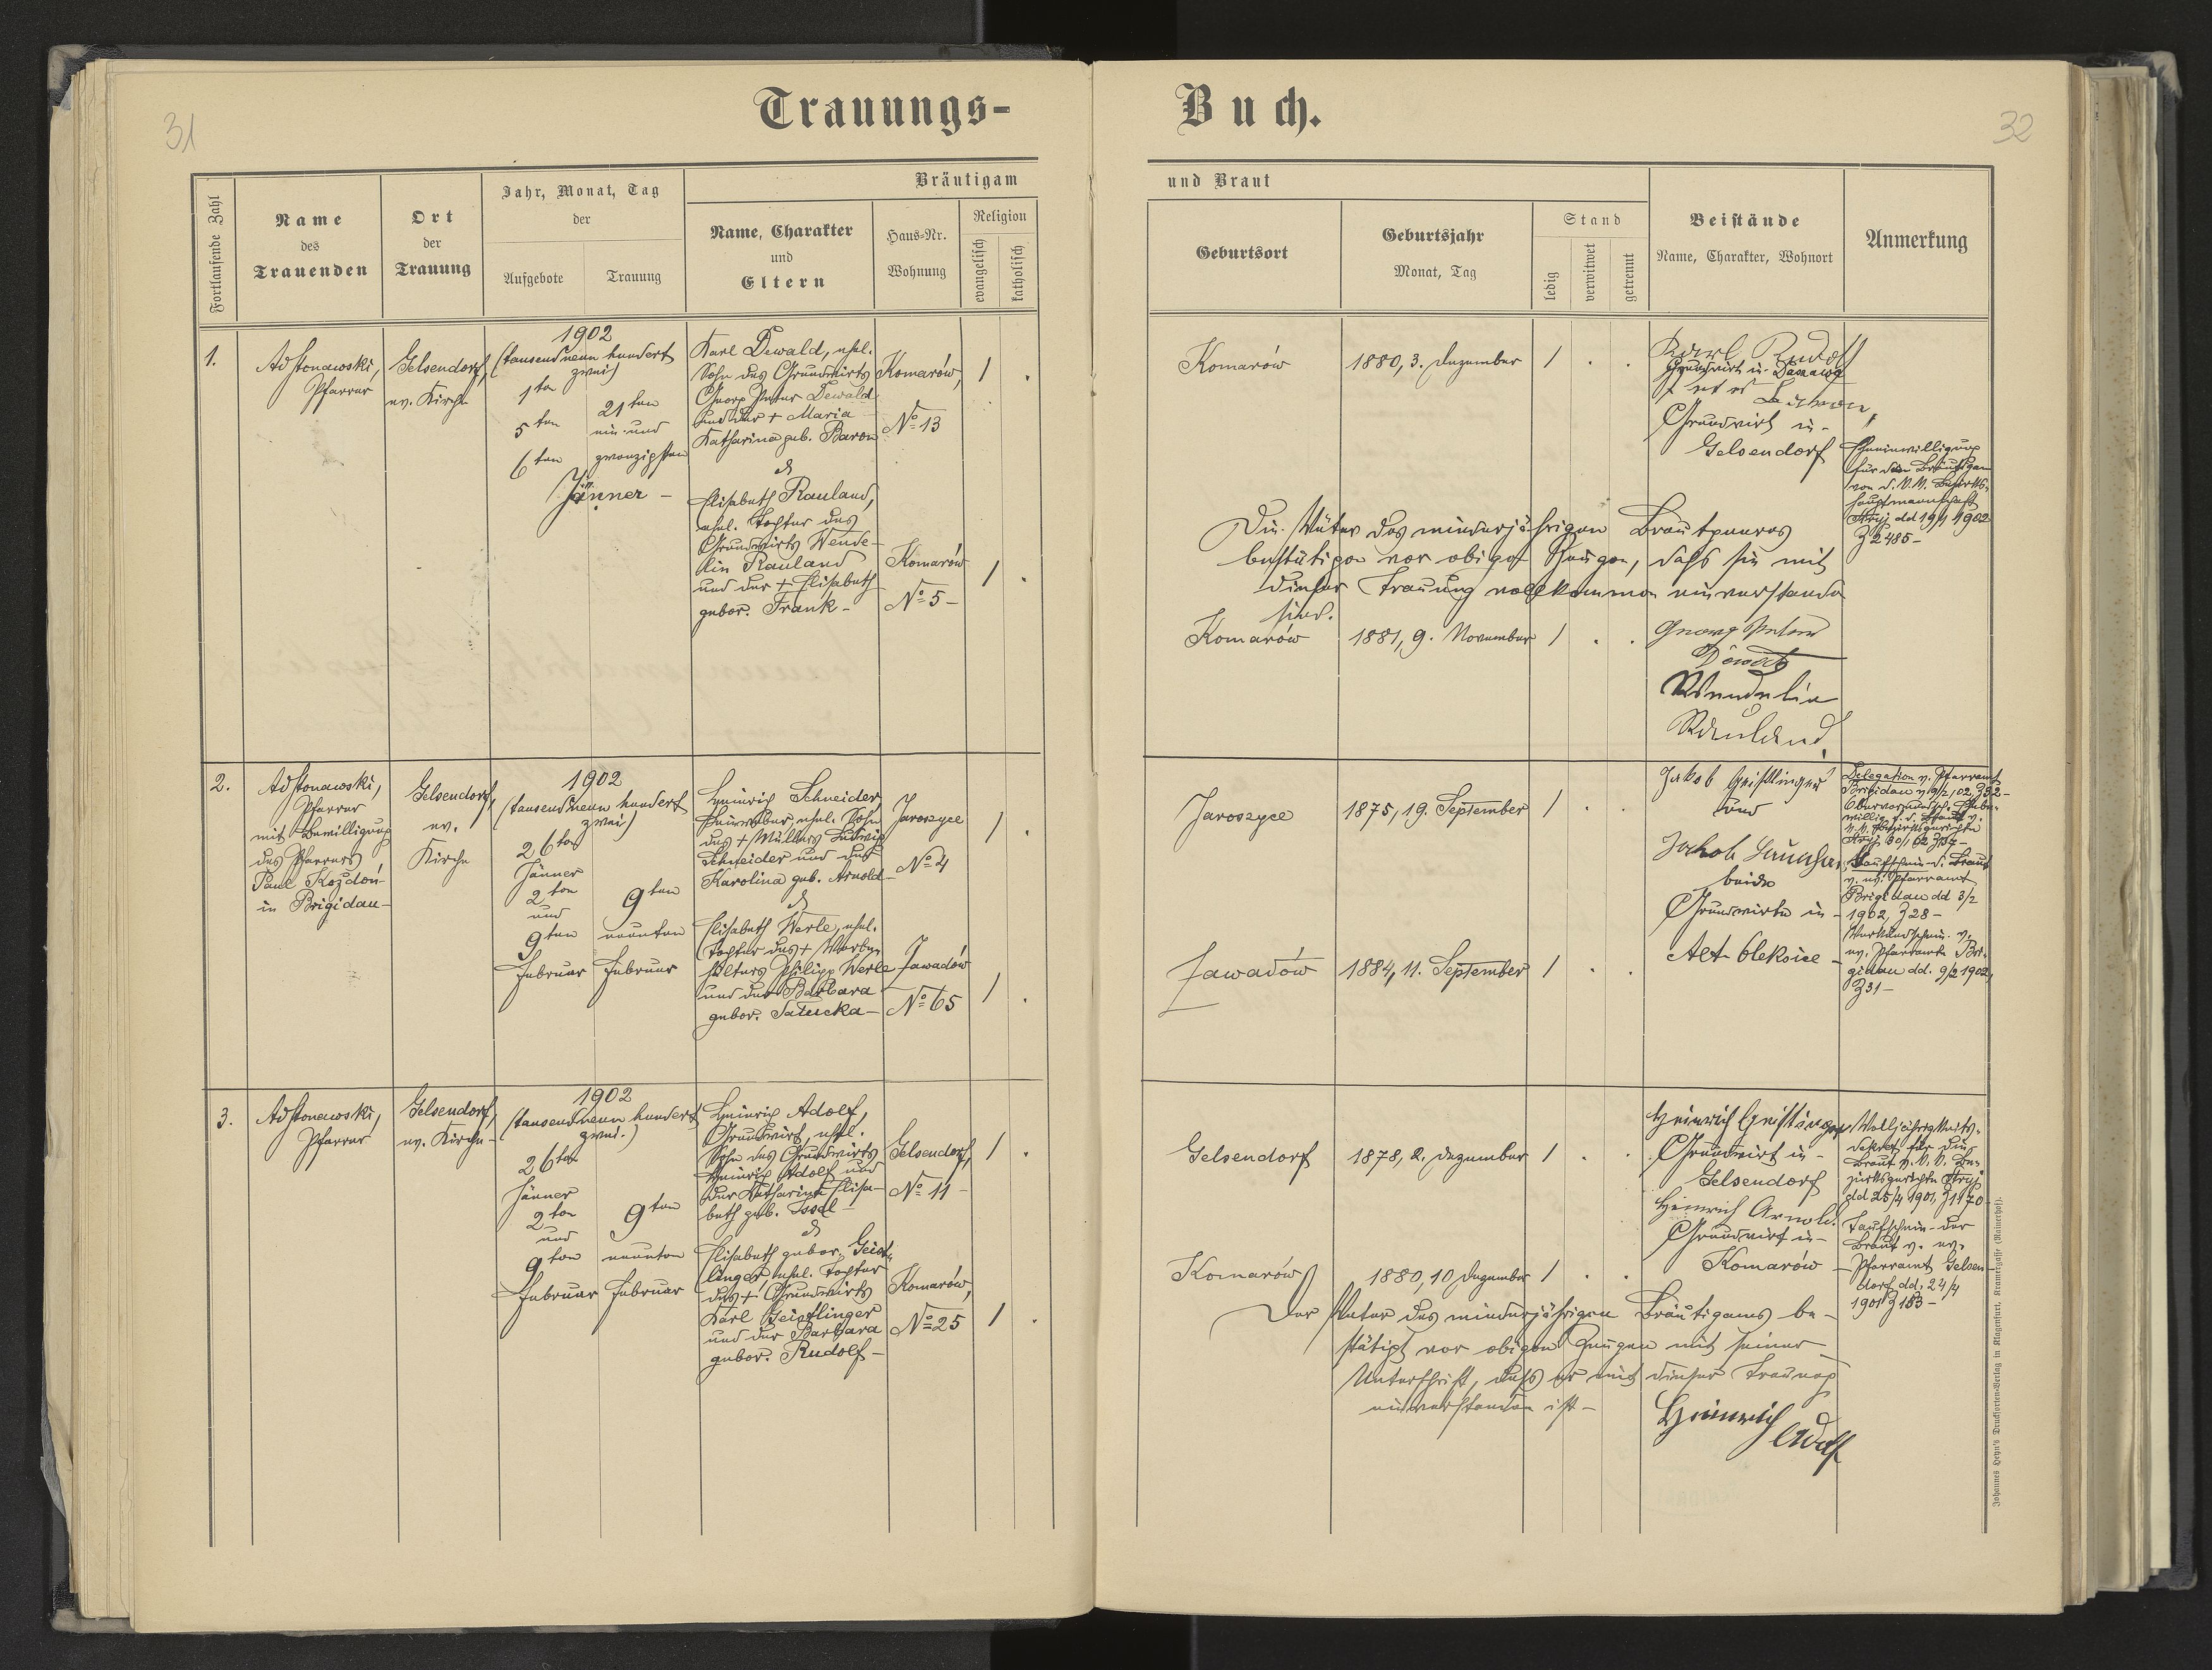 31
Trauungs-
Fortlaufende Zahl
Name
des
Trauenden
Ort
der
Trauung
Jahr, Monat, Tag
der
Aufgebote
Trauung
Bräutigam
Name, Charakter
und
Eltern
Haus-Nr.
Wohnung
Religion
evangelisch
katholisch
1.
Pfarrer
Gelsendorf,
ev. Kirche
1902
(tausend neun hundert
zwei)
1ten
5ten
6ten
21ten
ein und
zwanzigsten
Jänner -
Karl Dewald, ehel.
Sohn des Grundwirts
Georg Peter Dewald
und der + Maria
Katharina geb. Baron
&
Elisabeth Rauland,
ehel. Tochter des
Grundwirts Wende-
lin Rauland
und der + Elisabeth
gebor. Frank -
Komarów,
No 13
Komarów
No 5 -
1
.
1
.
2.
Pfarrer
mit Bewilligung
des Pfarrers
Paul Kożdoń
in Brigidau -
Gelsendorf,
ev.
Kirche
1902
(tausend neun hundert
zwei)
26ten
Jänner
2ten
und
9ten
Februar
9ten
neunten
Februar
Heinrich Schneider
ehel. Sohn
des + Müllers Ludwig
Schneider und der
Karolina geb. Arnold
&
Elisabeth Werle, ehel.
Tochter des +
Philipp Werle
und der Barbara
gebor.
Jaroszyce
No 4
Zawadów
No 65
1
.
1
.
3.
Pfarrer
Gelsendorf,
ev. Kirche -
1902
(tausend neun hundert
zwei.)
26ten
Jänner
2ten
und
9ten
Februar
9ten
neunten
Februar
Heinrich Adolf,
Grundwirt, ehel.
Sohn des Grundwirts
Heinrich Adolf und
der Katharina Elisa-
beth geb. Issel -
&
Elisabeth gebor. Geist-
linger, ehel. Tochter
des + Grundwirts
Karl Geistlinger
und der Barbara
gebor. Rudolf -
Gelsendorf,
No 11 -
Komarów,
No 25
1
.
1
.
Buch.
32
und Braut
Geburtsort
Geburtsjahr
Monat, Tag
Stand
ledig
verwitwet
getrennt
Beistände
Name, Charakter, Wohnort
Anmerkung
Komarów
1880, 3. Dezember
1
.
.
Karl Rudolf
Grundwirt in Daszawa
Grundwirt in -
Gelsendorf
Eheeinwilligung
für den Bräutigam
von d. k. k. Bezirks-
hauptmannschaft
Stryj dd 19/1 1902
Z 2485 -
Die Väter des minderjährigen Brautpaares
bestätigen vor obigen Zeugen, dass sie mit
dieser Trauung vollkommen einverstanden
sind.
Komarów
1881, 9. November
1
.
.
Georg Peter
Dewald
Wendelin
Rauland
Jaroszyce
1875, 19. September
1
.
.
Jakob Geistlinger
und
Jakob
beide
Grundwirte in -
Alt Oleksice -
Delegation v. Pfarramt
Brigidau v. 9/2, 02, Z 32 -
k. k. Bezirksgerichte
Stryj 30/1 02
Taufschein d. Braut
v. ev. Pfarramt
Brigidau dd 3/2
1902, Z 28 -
Verkündschein v.
ev. Pfarramte Bri-
gidau dd. 9/2 1902,
Z 31 -
Zawadów
1884, 11. September
1
.
.
Gelsendorf
1878, 2. Dezember
1
.
.
Heinrich Geistlinger
Grundwirt in -
Gelsendorf
Heinrich Arnold
Grundwirt in -
Komarów -
Volljährigkeits-
dekret für die
Braut v. k. k. Be-
zirksgerichte Stryj
dd 25/4 1901, Z 1170
Taufschein der
Braut v. ev.
Pfarramt Gelsen-
dorf dd. 24/4
1901 Z 183 -
Komarów
1880, 10 Dezember
1
.
.
Der Vater des minderjährigen Bräutigams be-
stätigt vor obigen Zeugen mit seiner
Unterschrift, dass er mit dieser Trauung
einverstanden ist -
Heinrich
Adolf
Johannes Heyn's Drucksorten-Verlag in Klagenfurt, Kramergasse (Kleinerhof).